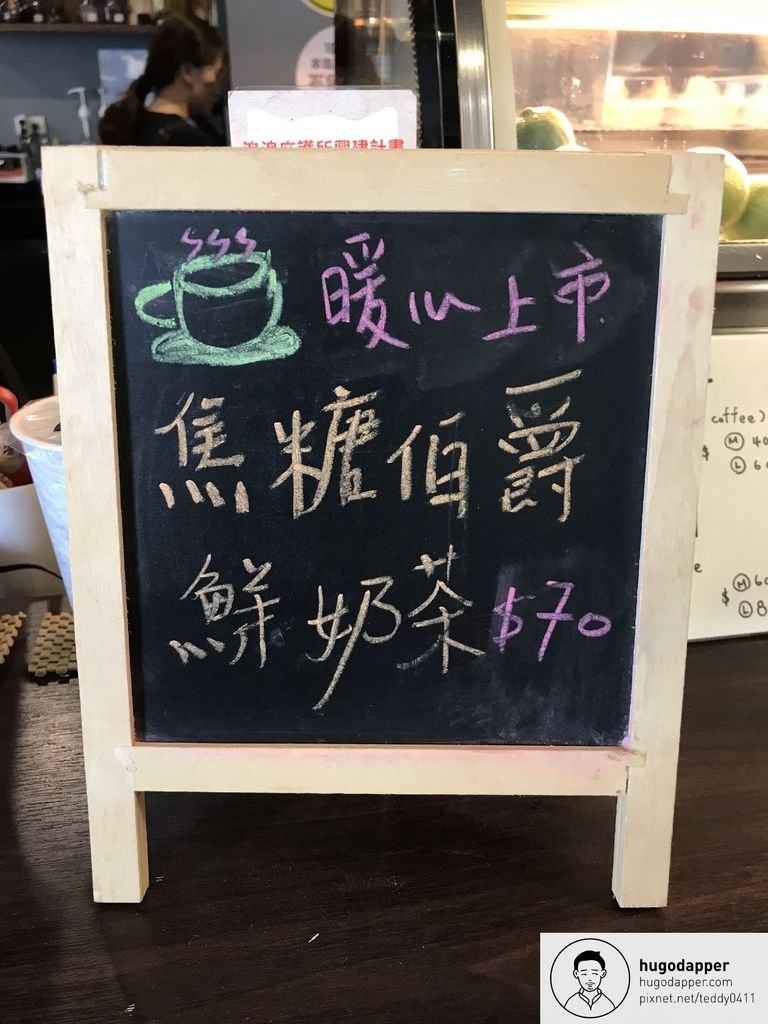 浪浪庇護所興建計畫
暖心上市
焦糖伯爵
鮮奶茶$70
coffee)
$
M 40
L 6
$
M 60
L 8
hugodapper
hugodapper.com
pixnet.net/teddy0411